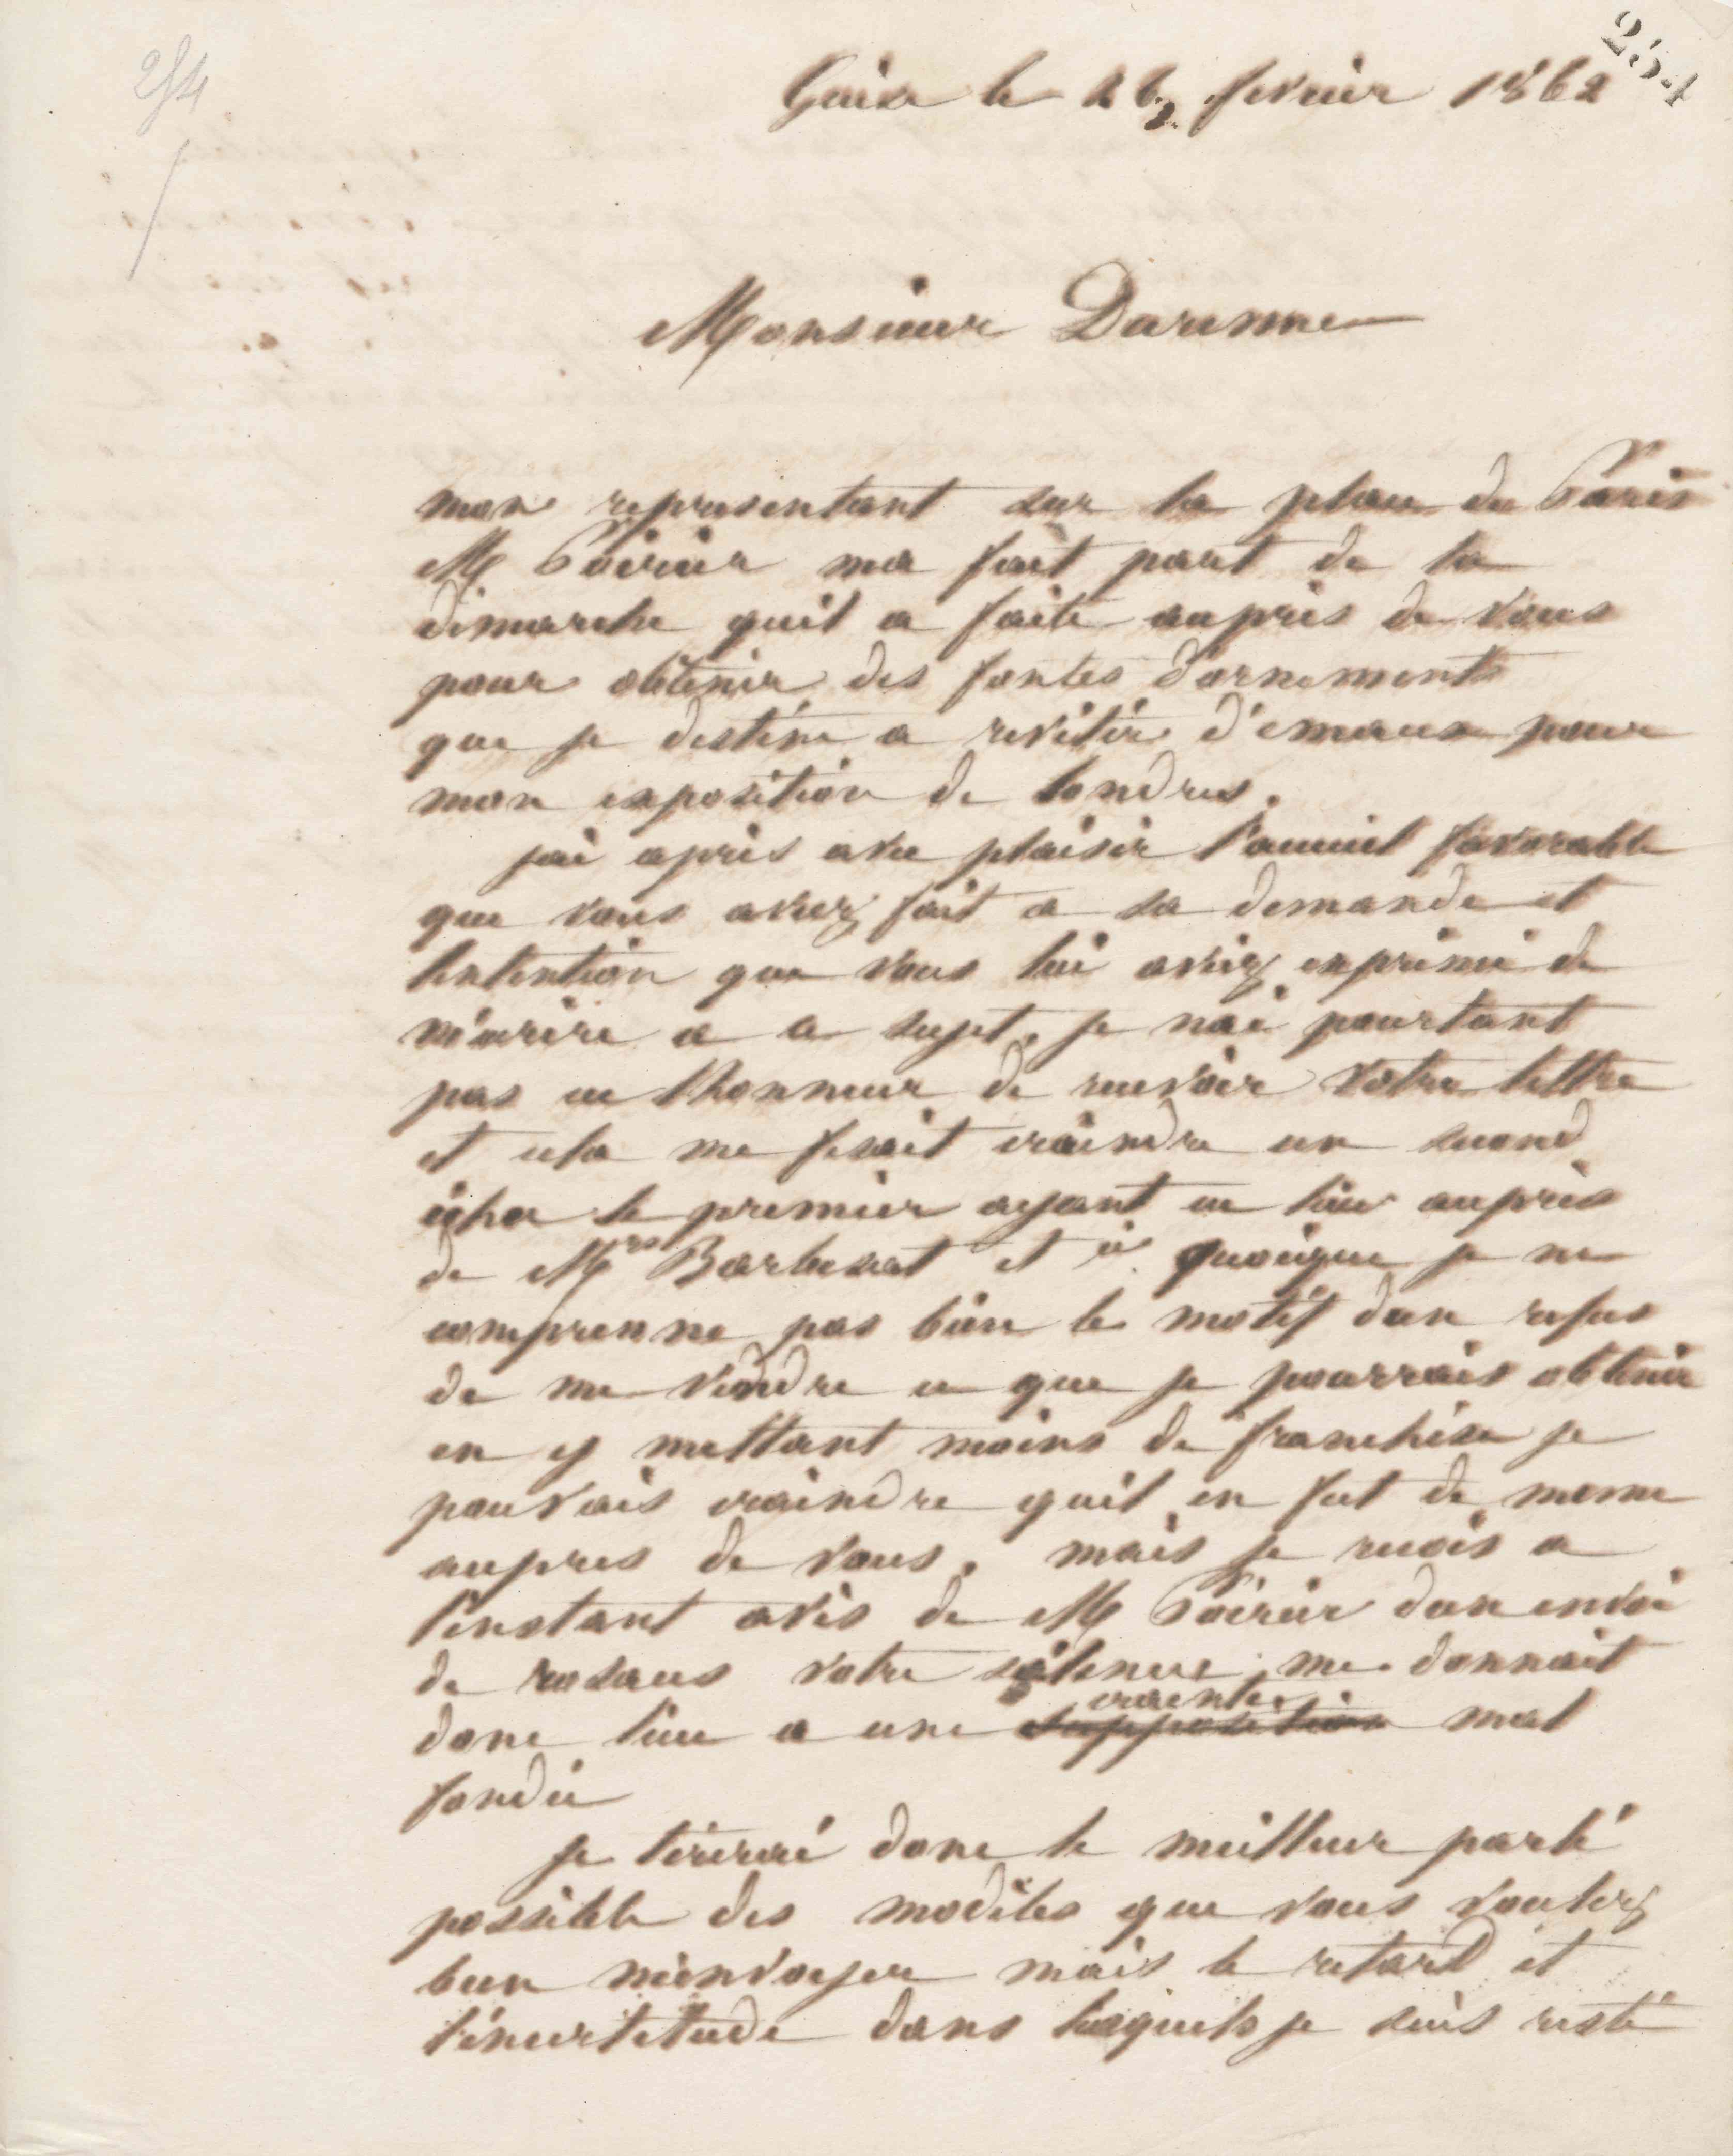 254
254
Guise le 26 fevrier 1862
Monsieur Darenne
mon representant sur la place de Paris
M Poirier ma fait part de la
démarche quil a faite auprès de vous
pour obtenir des fontes dornements
que je destine a revêtir d'émaux pour
mon exposition de Londres.
jai apris avec plaisir l'accueil favorable
que vous avez fait a sa demande et
lintention que vous lui aviez exprimé de
m'écrire a ce sujet. je nai pourtant
pas eu lhonneur de recevoir votre lettre
et cela me fesait craindre un second
échec le premier ayant eu lieu auprès
de Mrs Barbezat et Cie quoique je ne
comprenne pas bien le motif dun refus
de me vendre ce que je pourrais obtenir
en y mettant moins de franchise je
pouvais craindre quil en fut de meme
aupres de vous. mais je reçois a
l'instant avis de M Poirier dun envoi
de rosaces votre silence me donnait
donc lieu a une supposition crainte mal
fondée
je tirerai donc le meilleur parti
possible des modèles que vous voulez
bien m'envoyer mais le retard et
l'incertitude dans lesquels je suis resté